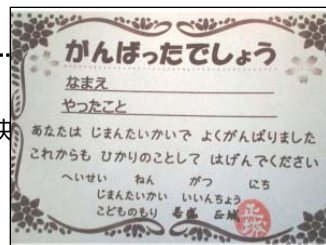 がんばったでしょう
なまえ
やったこと
あなたは じまんたいかいで よくがんばりました
これからも ひかりのことして はげんでください
へいせい ねん がつ にち
じまんたいかい いいんちょう
こどものもり